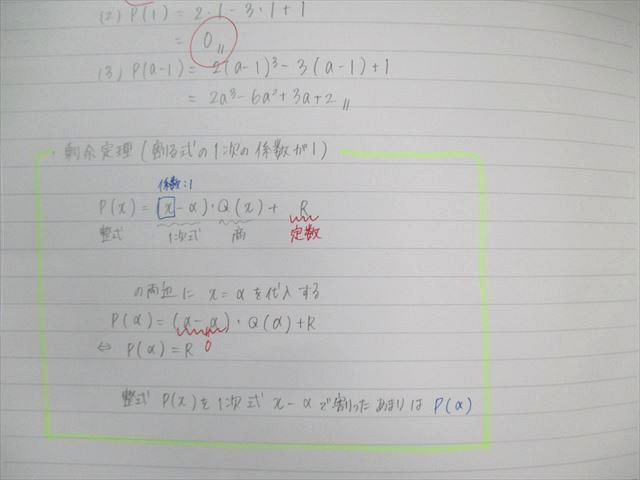 (2) P(1) = 2・1 - 3・1 + 1
= 0 〃
(3) P(a-1) = 2(a-1)³ - 3(a-1) + 1
= 2a³ - 6a² + 3a + 2 〃
・剰余定理 (割る式の1次の係数が1)
係数:1
P(x) = (x - α)・Q(x) + R
整式 1次式 商 定数
の両辺に x = α を代入する
P(α) = (α - α)・Q(α) + R
⇔ P(α) = R 0
整式 P(x) を1次式 x - α で割ったあまりは P(α)